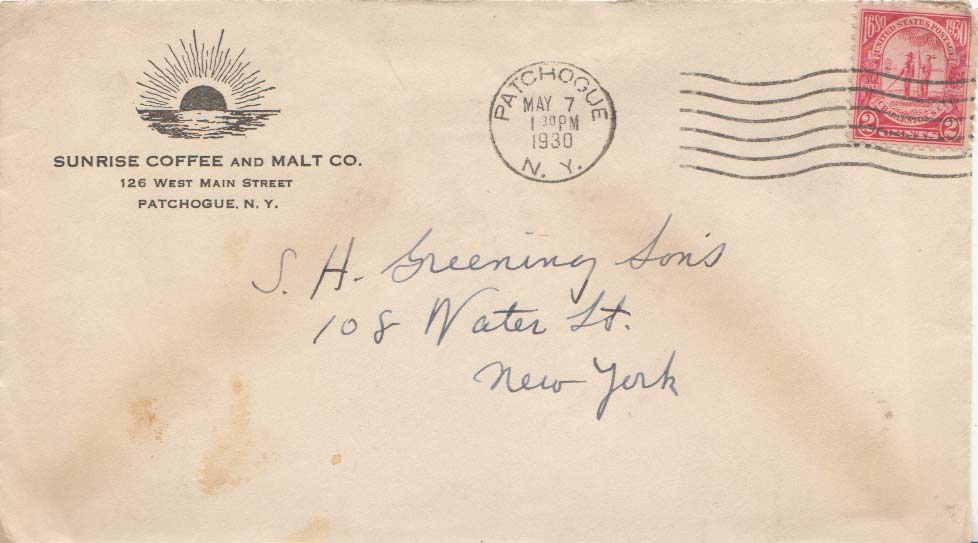 SUNRISE COFFEE AND MALT CO.
126 WEST MAIN STREET
PATCHOGUE, N. Y.
PATCHOGUE
MAY 7
1 30 PM
1930
N. Y.
1680 1930
UNITED STATES POSTAGE
2 CENTS 2
S. H. Greening Sons
108 Water St.
New York